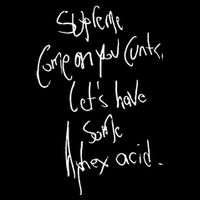 Supreme
Come on you Cunts,
let's have
some
Aphex acid.